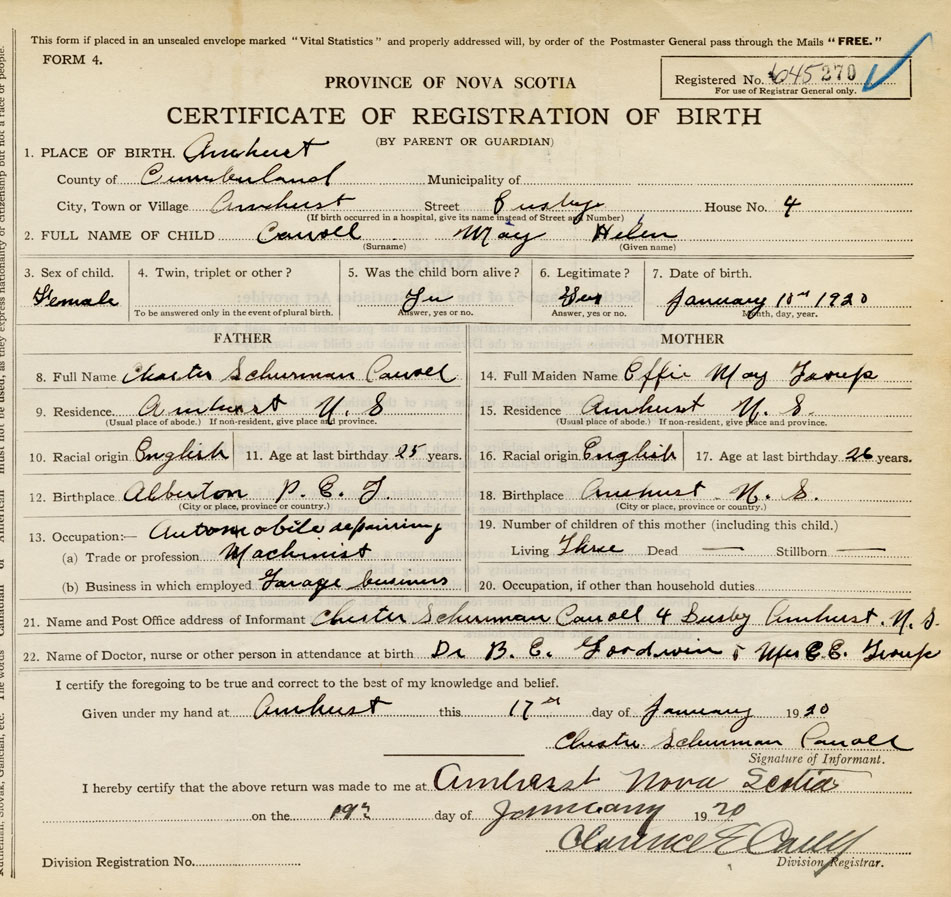 This form if placed in an unsealed envelope marked "Vital Statistics" and properly addressed will, by order of the Postmaster General pass through the Mails "FREE."
FORM 4.
Registered No. 645270
For use of Registrar General only.
PROVINCE OF NOVA SCOTIA
CERTIFICATE OF REGISTRATION OF BIRTH
(BY PARENT OR GUARDIAN)
1. PLACE OF BIRTH. Amherst
County of Cumberland Municipality of
City, Town or Village Amherst Street Busby House No. 4
(If birth occurred in a hospital, give its name instead of Street and Number)
2. FULL NAME OF CHILD Carroll May Helen
(Surname) (Given name)
3. Sex of child. 4. Twin, triplet or other? 5. Was the child born alive? 6. Legitimate? 7. Date of birth.
Female Yes Yes January 1920
To be answered only in the event of plural birth. Answer, yes or no. Answer, yes or no. Month, day, year.
FATHER
8. Full Name Chester Schurman Carroll
9. Residence. Amherst N. S
(Usual place of abode.) If non-resident, give place and province.
10. Racial origin English 11. Age at last birthday 25 years.
12. Birthplace Alberton P. E. I.
(City or place, province or country.)
13. Occupation:— Automobile repairing
(a) Trade or profession Machinist
(b) Business in which employed Garage business
MOTHER
14. Full Maiden Name Effie May
15. Residence Amherst N. S.
(Usual place of abode.) If non-resident, give place and province.
16. Racial origin English 17. Age at last birthday 26 years.
18. Birthplace Amherst N. S.
(City or place, province or country.)
19. Number of children of this mother (including this child.)
Living Three Dead — Stillborn —
20. Occupation, if other than household duties
21. Name and Post Office address of Informant Chester Schurman Carroll 4 Busby Amherst. N. S.
22. Name of Doctor, nurse or other person in attendance at birth Dr B. E. Goodwin & Mrs C. E.
I certify the foregoing to be true and correct to the best of my knowledge and belief.
Given under my hand at Amherst this 17th day of January 1920
Chester Schurman Carroll
Signature of Informant.
I hereby certify that the above return was made to me at Amherst Nova Scotia
on the day of January 1920
Clarence E
Division Registrar.
Division Registration No.